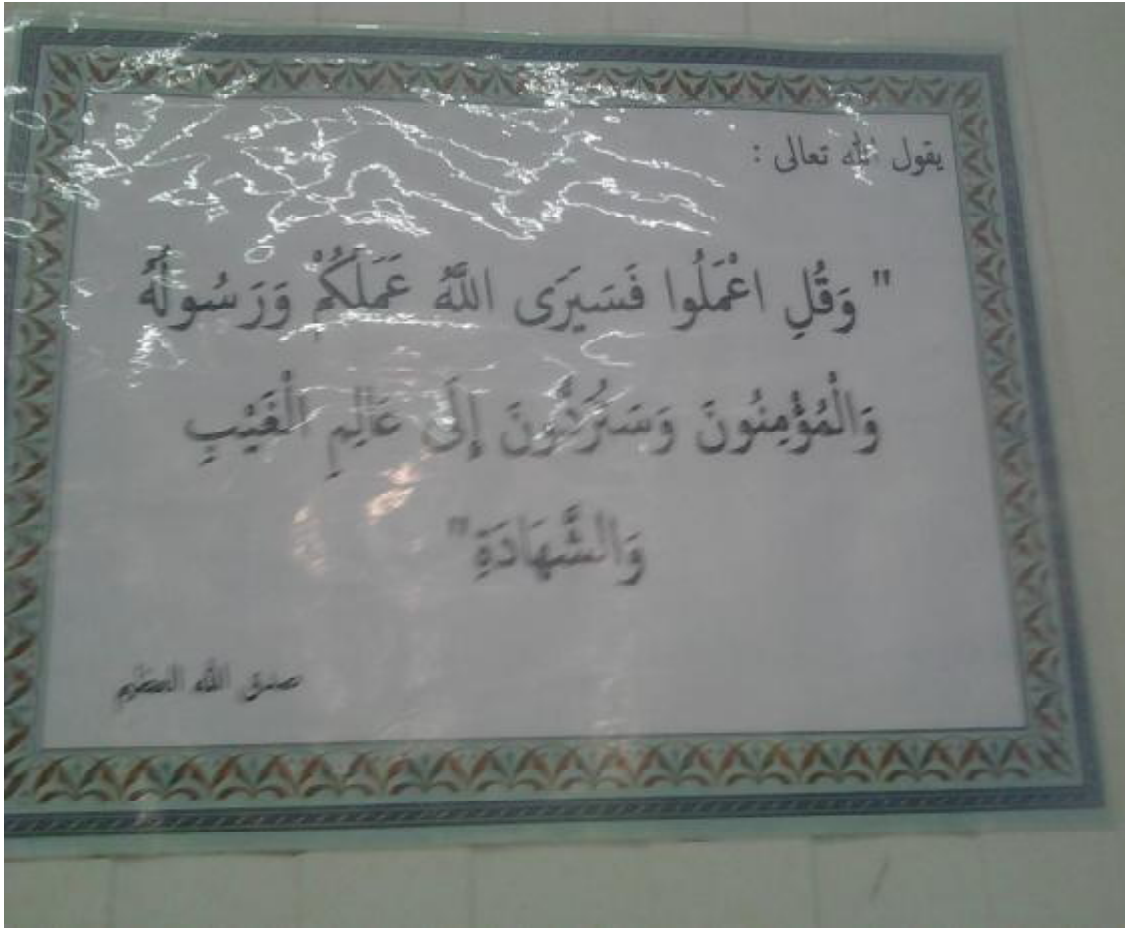 يقول الله تعالى :
" وَقُلِ اعْمَلُوا فَسَيَرَى اللَّهُ عَمَلَكُمْ وَرَسُولُهُ
وَالْمُؤْمِنُونَ وَسَتُرَدُّونَ إِلَى عَالِمِ الْغَيْبِ
وَالشَّهَادَةِ"
صدق الله العظيم